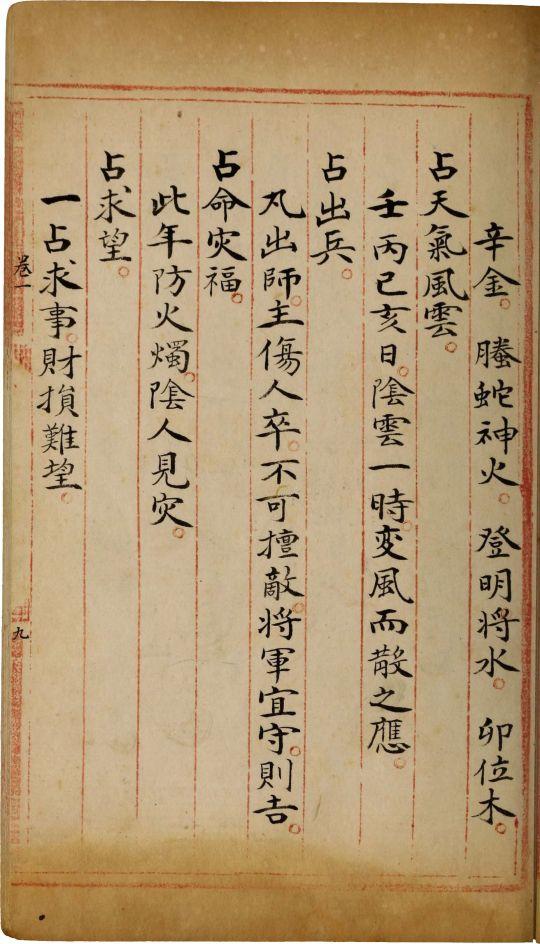 辛金。螣蛇神火。登明将水。卯位木。
占天氣風雲。
壬丙已亥日。陰雲一時。変風而散之應。
占出兵。
凡出師。主傷人卒。不可擅敵。将軍宜守。則吉。
占命灾福。
此年防火燭。陰人見灾。
占求望。
一占求事。財損難望。
卷一
九